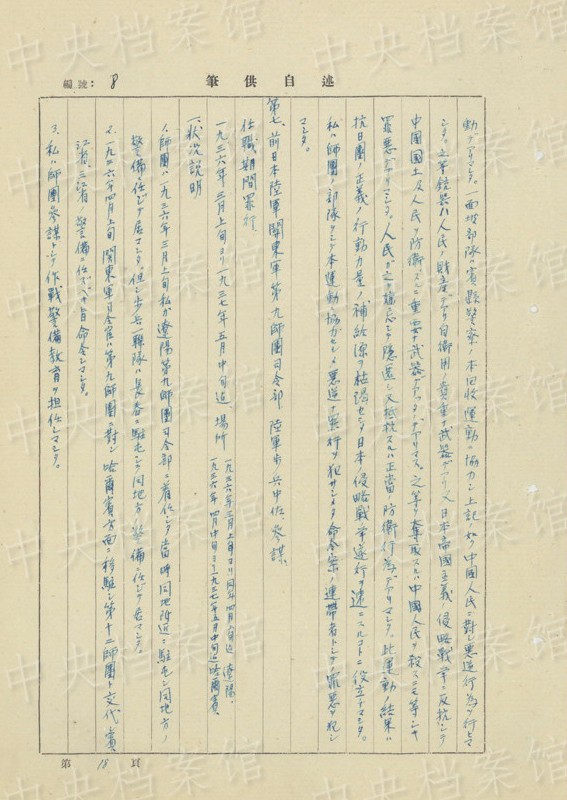 中央档案馆
編號: 8
筆供自述
動デアリマシタ。一面坡部隊ハ賓縣警察ノ本回収運動ニ協力シ上記ノ如ク中國人民ニ對シ悪逆行為ヲ行ヒマ
シタ。之等銃器ハ人民ノ財産デアリ自衛用ノ貴重ナ武器デアリ又日本帝國主義ノ侵略戦争ニ反抗シテ
中國國土及人民ヲ防衛スルニ重要ナ武器デアッタノデアリマス。之等ヲ奪取スルハ中國人民ヲ殺スニモ等シキ
罪悪デアリマシタ。人民ガ之ヲ嫌忌シ隠匿シ又抵抗スルハ正當ノ防衛行為デアリマシタ。此運動ノ結果ハ
抗日團ノ正義ノ行動力量ノ補給源ヲ枯渇セシメ日本ノ侵略戦争遂行ヲ速ニスルコトニ役立チマシタ。
私ハ師團ノ部隊ヲシテ本運動ニ協力セシメ悪逆ナ罪行ヲ犯サシメタ命令案ノ連帯者トシテノ罪悪ヲ犯シ
マシタ。
第七、前日本陸軍関東軍第九師團司令部 陸軍歩兵中佐、参謀、
任職期間罪行、
一九三六年三月上旬ヨリ一九三七年五月中旬迄 場所 一九三六年三月上旬ヨリ同年四月中旬迄 遼陽、
一九三六年四月中旬ヨリ一九三七年五月中旬迄 哈爾賓、
一、状況説明
1、師團ハ一九三六年三月上旬私ガ遼陽第九師團司令部ニ着任シタ當時同地附近ニ駐屯シ同地方ノ
警備ニ任ジテ居マシタ。但シ歩兵一聯隊ハ長春ニ駐屯シテ同地方ノ警備ニ任ジテ居マシタ。
2、一九三六年四月上旬関東軍司令官ハ第九師團ニ對シ哈爾賓方面ニ移駐シ第十二師團ト交代シ賓
江省、三江省ノ警備ニ任ズベキ旨命令シマシタ。
3、私ハ師團参謀トシテ作戦、警備、教育ヲ担任シマシタ。
第 18 頁